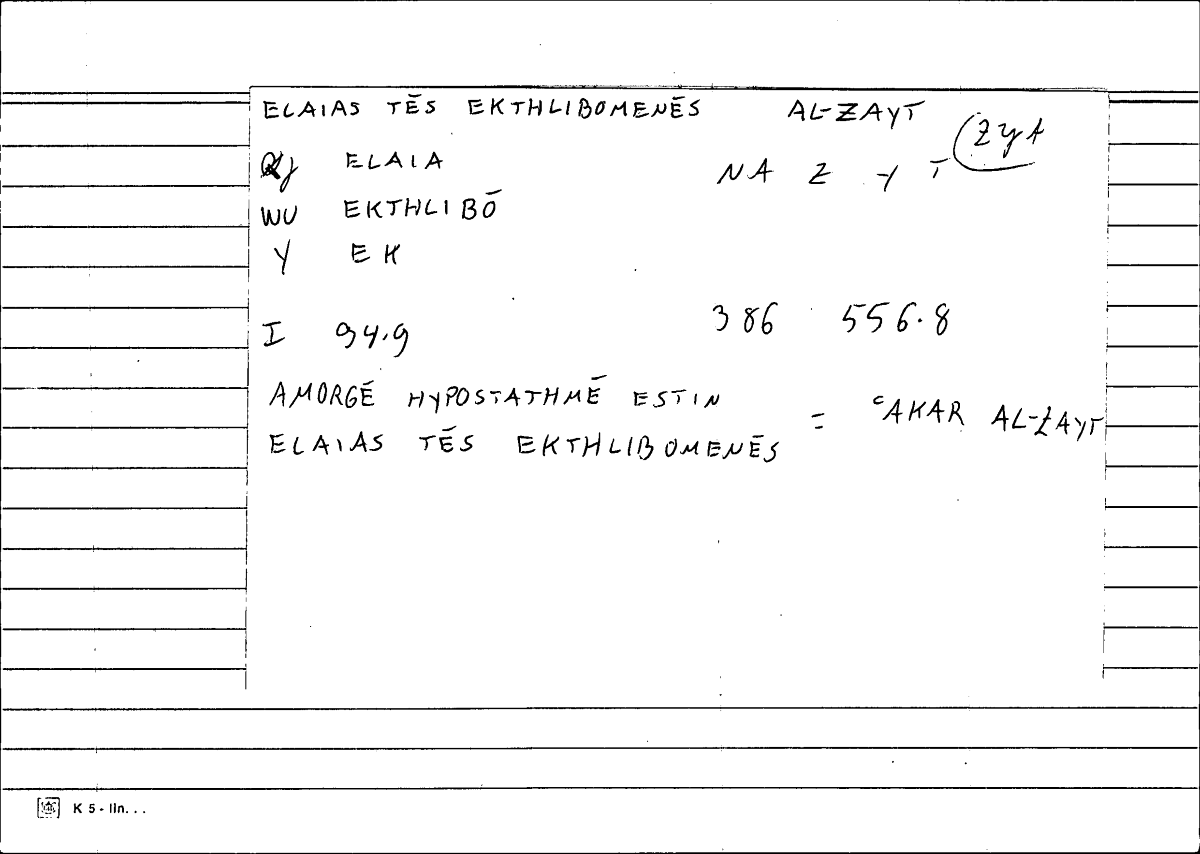 ELAIAS TĒS EKTHLIBOMENĒS AL-ZAYT
ELAIA NA Z Y T zyt
WU EKTHLIBŌ
Y EK
I 94.9 386 556.8
AMORGĒ HYPOSTATHMĒ ESTIN = ʿAKAR AL-ZAYT
ELAIAS TĒS EKTHLIBOMENĒS
K 5 - lln. . .